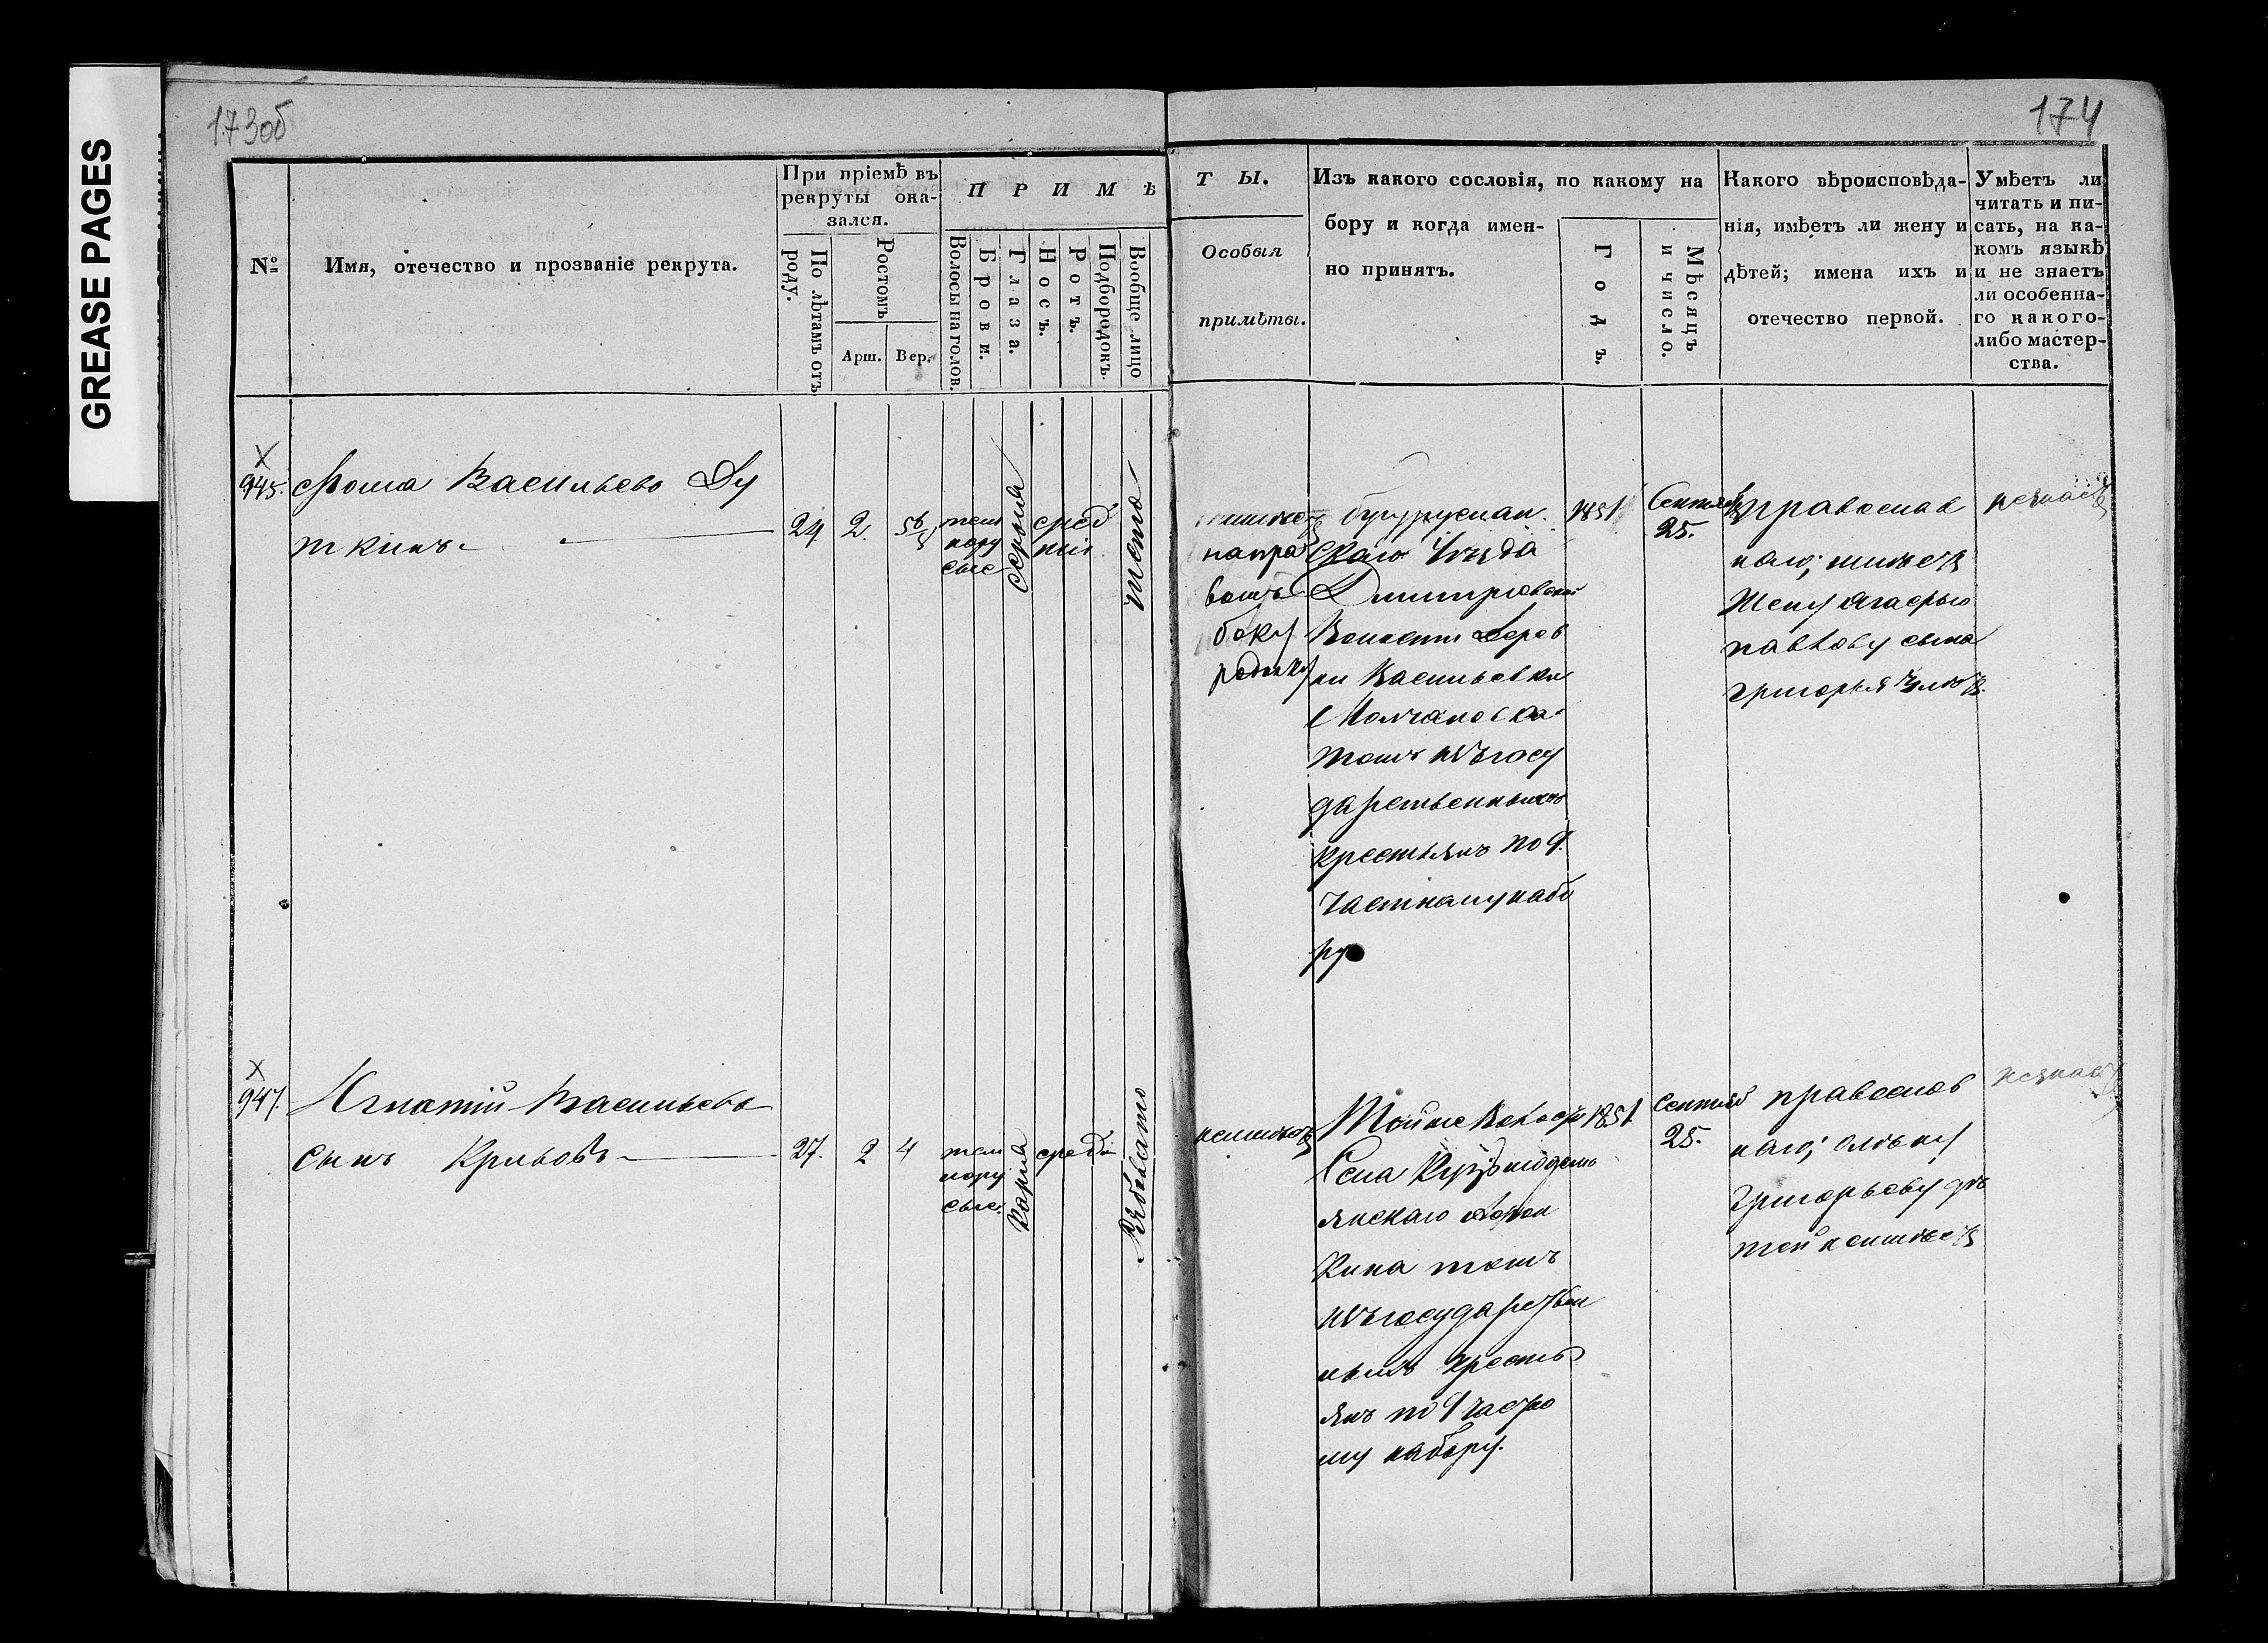 GREASE PAGES
173об
174
№
Имя, отечество и прозваніе рекрута.
При пріемѣ въ рекруты оказался.
По лѣтамъ отъ роду.
Ростомъ
Арш.
Вер.
ПРИМѢ
Волосы на голов.
Брови.
Глаза.
Носъ.
Ротъ.
Подбородокъ.
Вообще лицо
ТЫ.
Особыя
примѣты.
Изъ какого сословія, по какому на
бору и когда имен-
но принятъ.
Годъ.
Мѣсяцъ и число.
Какого вѣроисповѣда-
нія, имѣетъ ли жену и
дѣтей; имена ихъ и
отечество первой.
Умѣетъ ли
читать и пи-
сать, на ка-
комъ языкѣ
и не знаетъ
ли особенна-
го какого-
либо мастер-
ства.
945.
Фома Васильевъ Ду
ткинъ
24
2.
темнорусые
серыя
сред
ніе
чисто
имѣетъ
на пра
вомъ
боку
родинку
бугурусланскаго Уѣзда
Дмитріевской
Волости Дерев
ни Васильевки
Молчановка
тожъ изъ госу
дарственныхъ
крестьянъ по 9.
частному набо
ру
1851
Сентяб
25.
православ
наго; имѣетъ
Жену Агафью
павлову сына
григорья
незнаетъ
947.
Игнатій Васильевъ
сынъ Крыловъ
27.
2
4
темнорусые.
карія
сред
Рябовато
неимѣетъ
Тойже Волости
Села
янскаго
кина тожъ
изъ государствен
ныхъ кресть
янъ по 9 частно
му набору.
1851
Сентяб
25.
православ
наго;
Григорьеву дѣ
тей неимѣетъ
незнаетъ